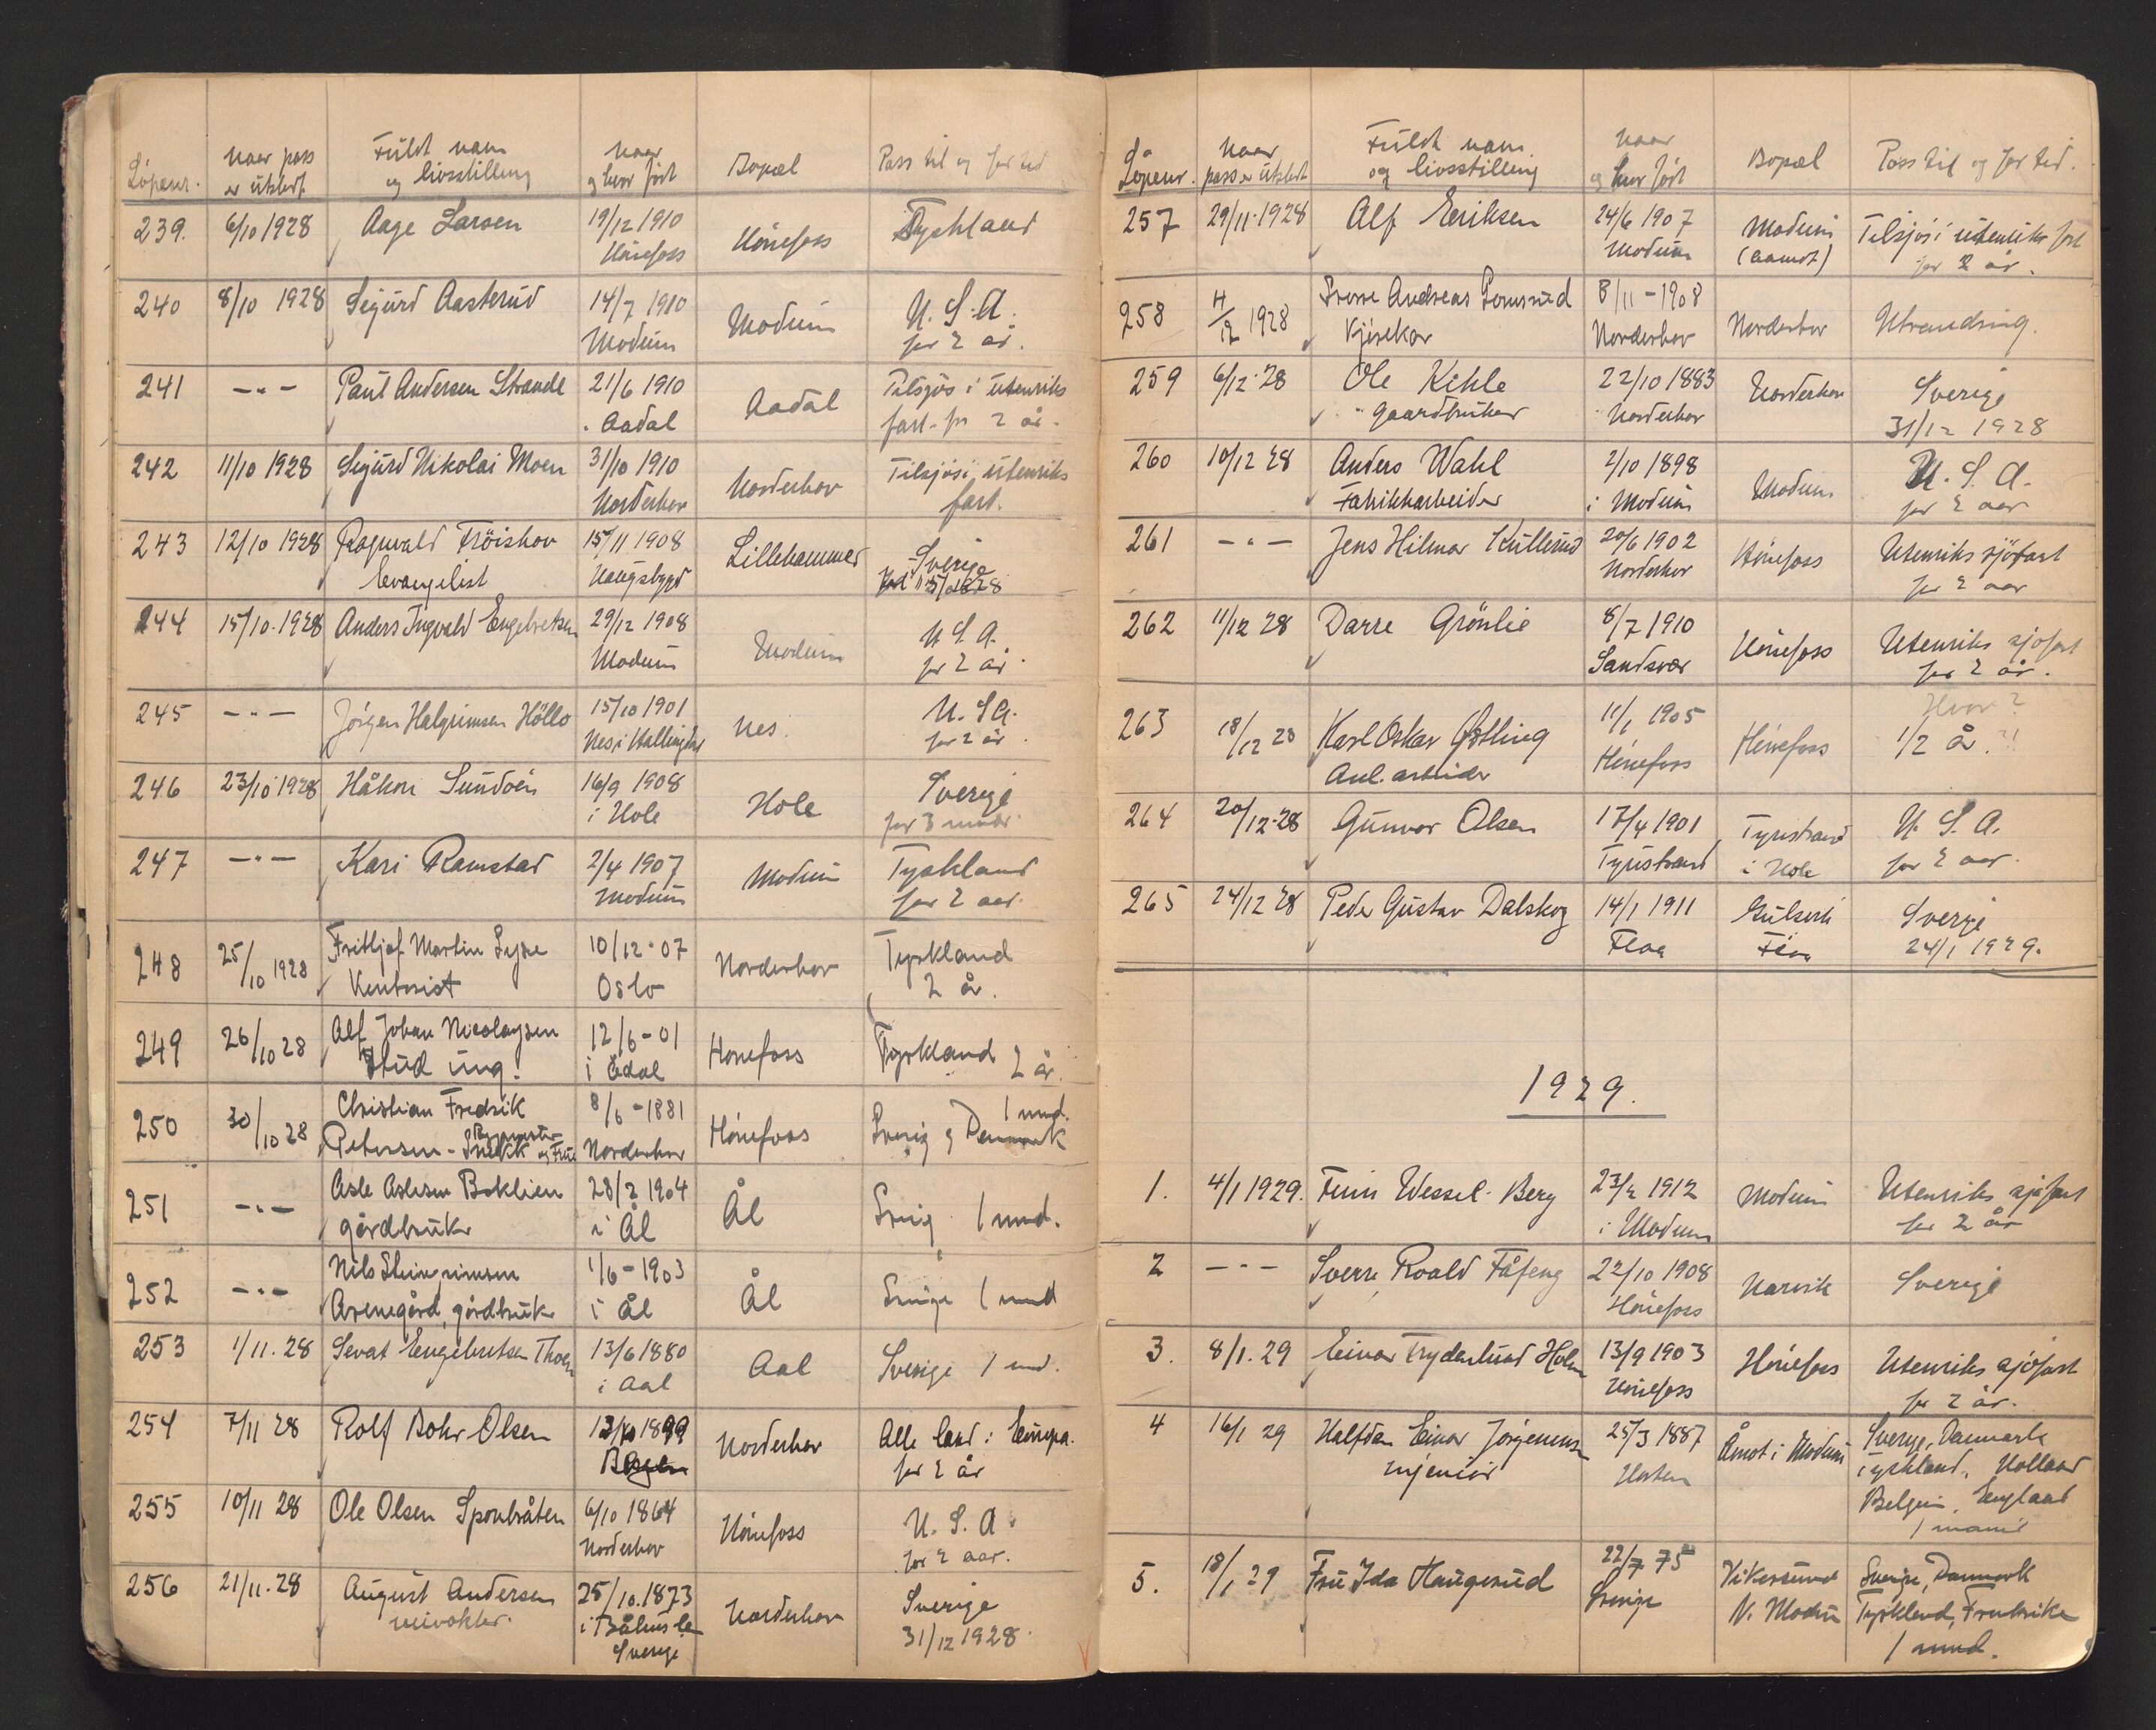 Löpenr. Naar pass er utstedt Fuldt navn og livsstilling Naar og hvor född Bopæl Pass til og for tid
239. 6/10 1928 Aage Larsen 19/12 1910 Hönefoss Hönefoss Tyskland
240 8/10 1928 Sigurd Aasterud 14/7 1910 Modum Modum U.S.A. for 2 år.
241 -"- Paul Andersen Strande 21/6 1910 Aadal Aadal Tilsjös i utenriks fart for 2 år.
242 11/10 1928 Sigurd Nikolai Moen 31/10 1910 Norderhov Norderhov Tilsjös i utenriks fart.
243 12/10 1928 Ragnvald Fröishov Evangelist 15/11 1908 Haugsbygd Lillehammer Sverige
244 15/10. 1928 Anders Ingvald Engebretsen 29/12 1908 Modum Modum U.S.A. for 2 år.
245 -"- Jörgen Halgrimsen Höllo 15/10 1901 Nes i Hallingdal Nes. U.S.A. for 2 år.
246 23/10 1928 Håkon Sundöen 16/9 1908 i Hole Hole Sverige for 3 mndr.
247 -"- Kari Ramstad 2/4 1907 Modum Modum Tyskland for 2 aar.
248 25/10 1928 Fritljof Martin Kontorist 10/12-07 Oslo Norderhov Tyskland 2 år.
249 26/10 28 Alf Johan Nicolaysen Stud ing. 12/6-01 i Ådal Hönefoss Tyskland 2 år.
250 30/10 28 Christian Fredrik Petersen - og Frue 8/6-1881 Norderhov Hönefoss Sverig og Denmark 1 mnd.
251 -"- Asle Aslesen Boklien gårdbruker 28/2 1904 i Ål Ål Sverig 1 mnd.
252 -"- Nils Steingrimsen gårdbruker 1/6-1903 i Ål Ål Sverige 1 mnd
253 1/11. 28 Sevat Engebretsen Thoen 13/6 1880 i Aal Aal Sverige 1 md.
254 7/11 28 Rolf Bohr Olsen 13/10 1899 Bergen Norderhov Alle land i Europa. for 2 år
255 10/11 28 Ole Olsen Sponbråten 6/10 1864 Norderhov Hönefoss U.S.A. for 2 aar.
256 21/11.28 August Andersen veivokter. 25/10.1873 i Båhuslen Sverige Norderhov Sverige 31/12 1928.
Löpenr. Naar pass er utstedt Fuldt navn og livsstilling Naar og hvor född Bopæl Pass til og for tid.
257 29/11.1928 Alf Eriksen 24/6 1907 Modum Modum (Aamot) Tilsjös i utenriks fart for 2 år.
258 4/12 1928 Sverre Andreas Gomsrud 8/11-1908 Norderhov Norderhov Utvandring.
259 6/12.28 Ole Kihle gaardbruker 22/10 1883 Norderhov Norderhov Sverige 31/12 1928
260 10/12 28 Anders Wahl Fabrikkarbeider 2/10 1898 i Modum Modum U.S.A. for 2 aar
261 -"- Jens Hilmar Kullerud 20/6 1902 Norderhov Hönefoss Utenriks sjöfart for 2 aar
262 11/12 28 Darre Grönlie 8/7 1910 Sandsvær Hönefoss Utenriks sjöfart for 2 år.
263 18/12 28 Karl Oskar Østling Anl. arbeider 11/1 1905 Hönefoss Hönefoss Hvor? 1/2 år.?!
264 20/12.28 Gunvor Olsen 17/4 1901 Tyristrand Tyristrand i Hole U.S.A. for 2 aar.
265 24/12 28 Peder Gustav Dalskog 14/1 1911 Flaa Gulsvik Flaa Sverige 24/1 1929.
1929.
1. 4/1 1929. Finn Wessel-Berg 23/2 1912 i Modum Modum Utenriks sjöfart for 2 år
2 -"- Sverre Roald Fåfeng 22/10 1908 Hönefoss Narvik Sverige
3. 8/1.29 Einar Tryderlund Holm 13/9 1903 Hönefoss Hönefoss Utenriks sjöfart for 2 år.
4 16/1 29 Halfdan Einar Jörgensen Injeniör 25/3 1887 Horten Åmot i Modum Sverge, Danmark Tyskland, Holland Belgien, England 1 maaned
5. 18/1 29 Fru Ida Haugerud 22/7 75 Sverige Vikersund N. Modum Sverige, Danmark Tyskland, Frankrike 1 mnd.